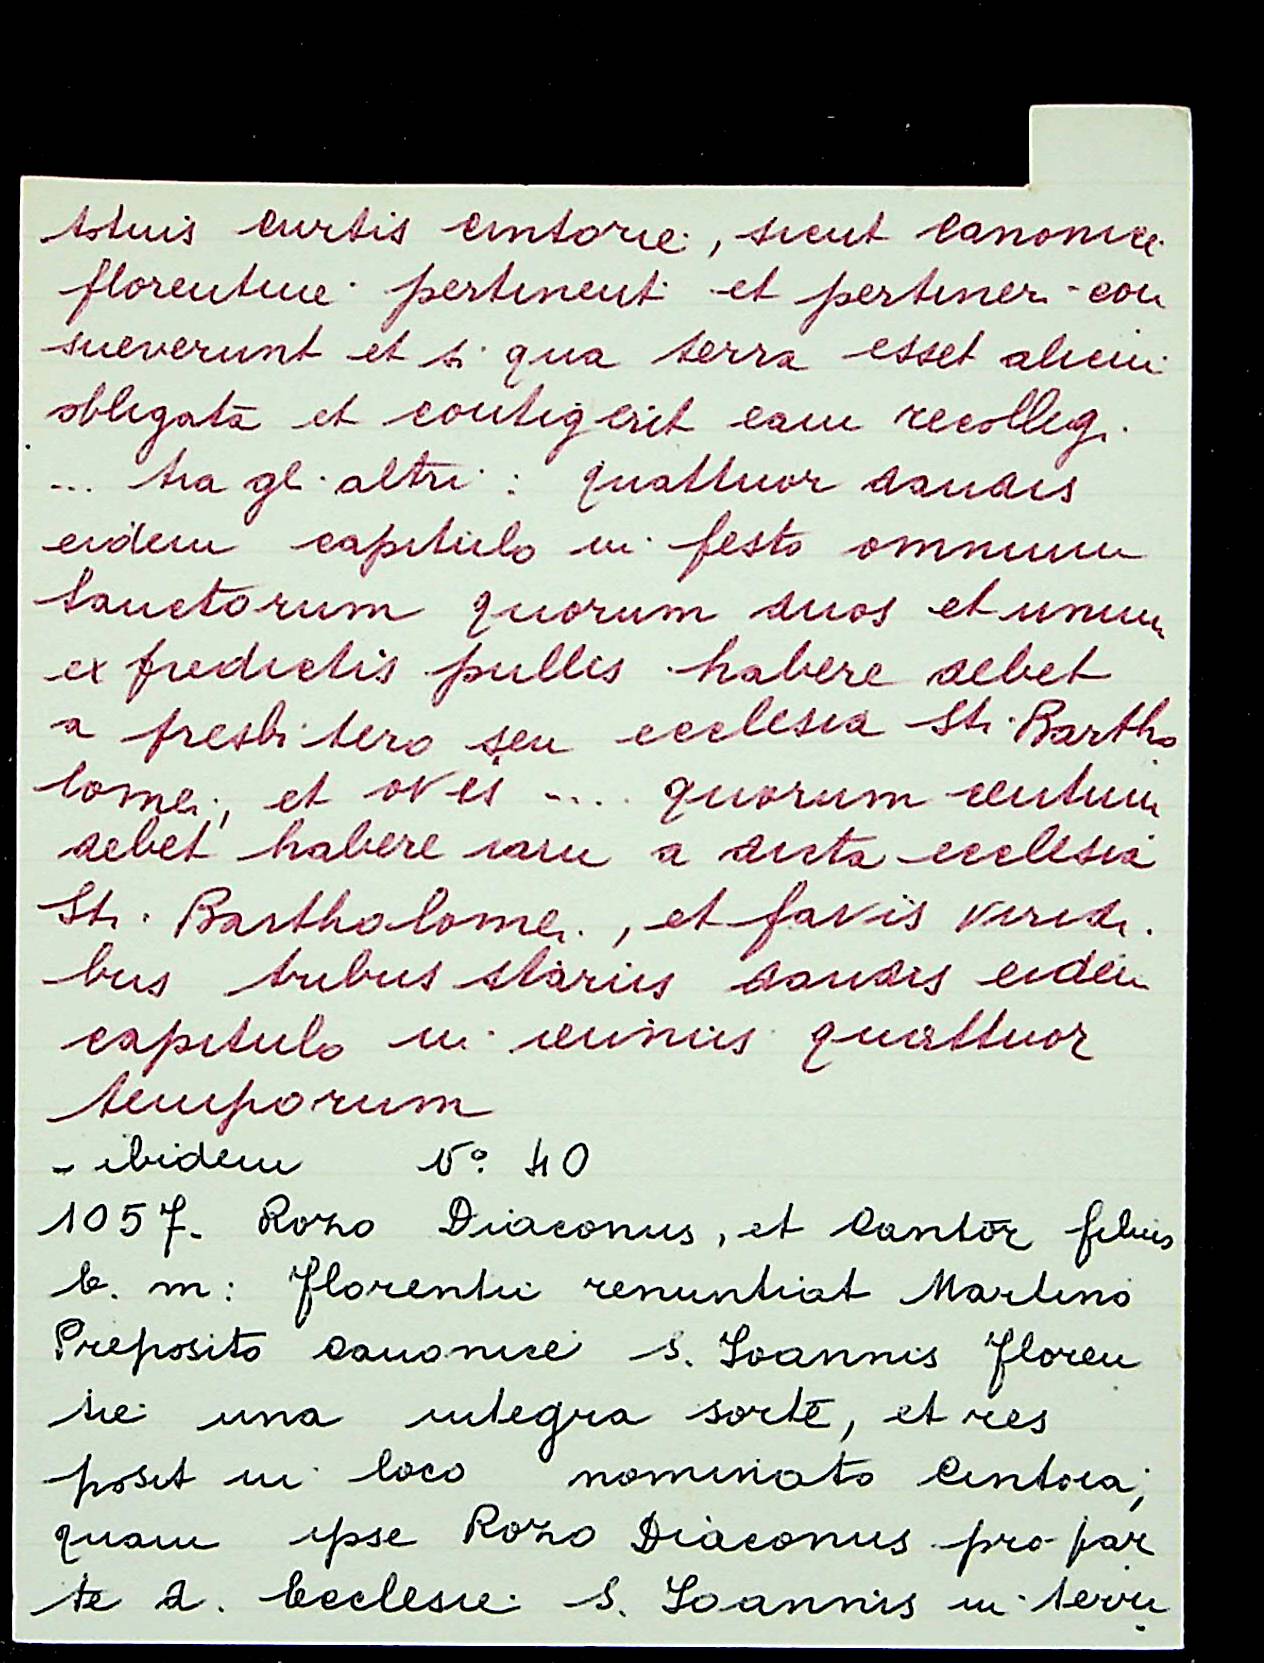 totius curtis cintorie, sicut canonice
florentine pertinent et pertineri con
sueverunt et si qua terra esset alicui
obligata et contigerit eam recolligi
... tra gli altri: quattuor dandis
eidem capitulo in festo omnium
Sanctorum quorum duos et unum
ex predictis pullis habere debet
a presbitero seu ecclesia Sti. Bartho
lomei, et ovis .... quorum centum
debet habere iam a dicta ecclesia
Sti. Bartholomei, et favis viridi
bus tribus stariis dandis eidem
capitulo in ieiuniis quattuor
temporum
- ibidem No. 40
1057. Rozo Diaconus, et Cantor filius
b. m: Florentii renuntiat Martino
Preposito canonice S. Ioannis Floren
tie una integra sorte, et res
posit in loco nominato Cintoia;
quam ipse Rozo Diaconus pro par
te d. Ecclesie S. Ioannis in tenu